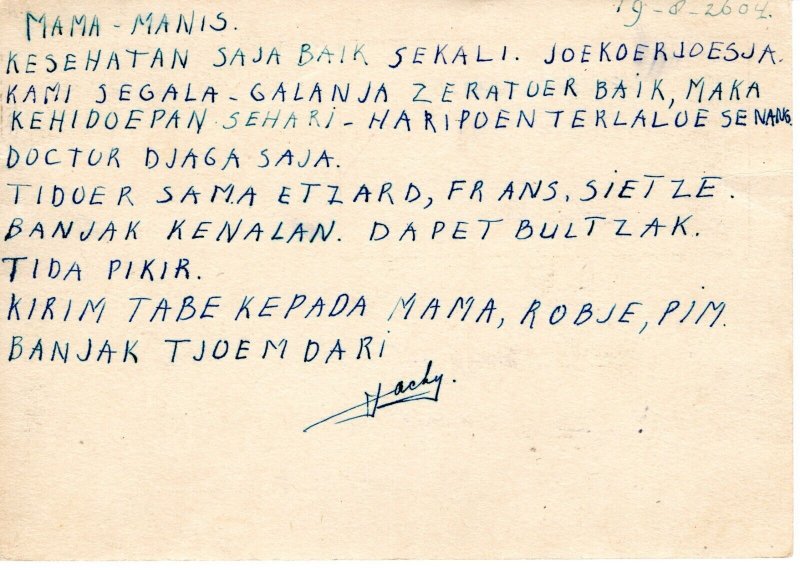 19-8-2604.
MAMA-MANIS.
KESEHATAN SAJA BAIK SEKALI. JOEKOERJOESJA.
KAMI SEGALA-GALANJA ZERATOER BAIK, MAKA
KEHIDOEPAN SEHARI-HARIPOEN TERLALOE SENANG.
DOCTUR DJAGA SAJA.
TIDOER SAMA ETZARD, FRANS, SIETZE.
BANJAK KENALAN. DAPET BULTZAK.
TIDA PIKIR.
KIRIM TABE KEPADA MAMA, ROBJE, PIM.
BANJAK TJOEM DARI